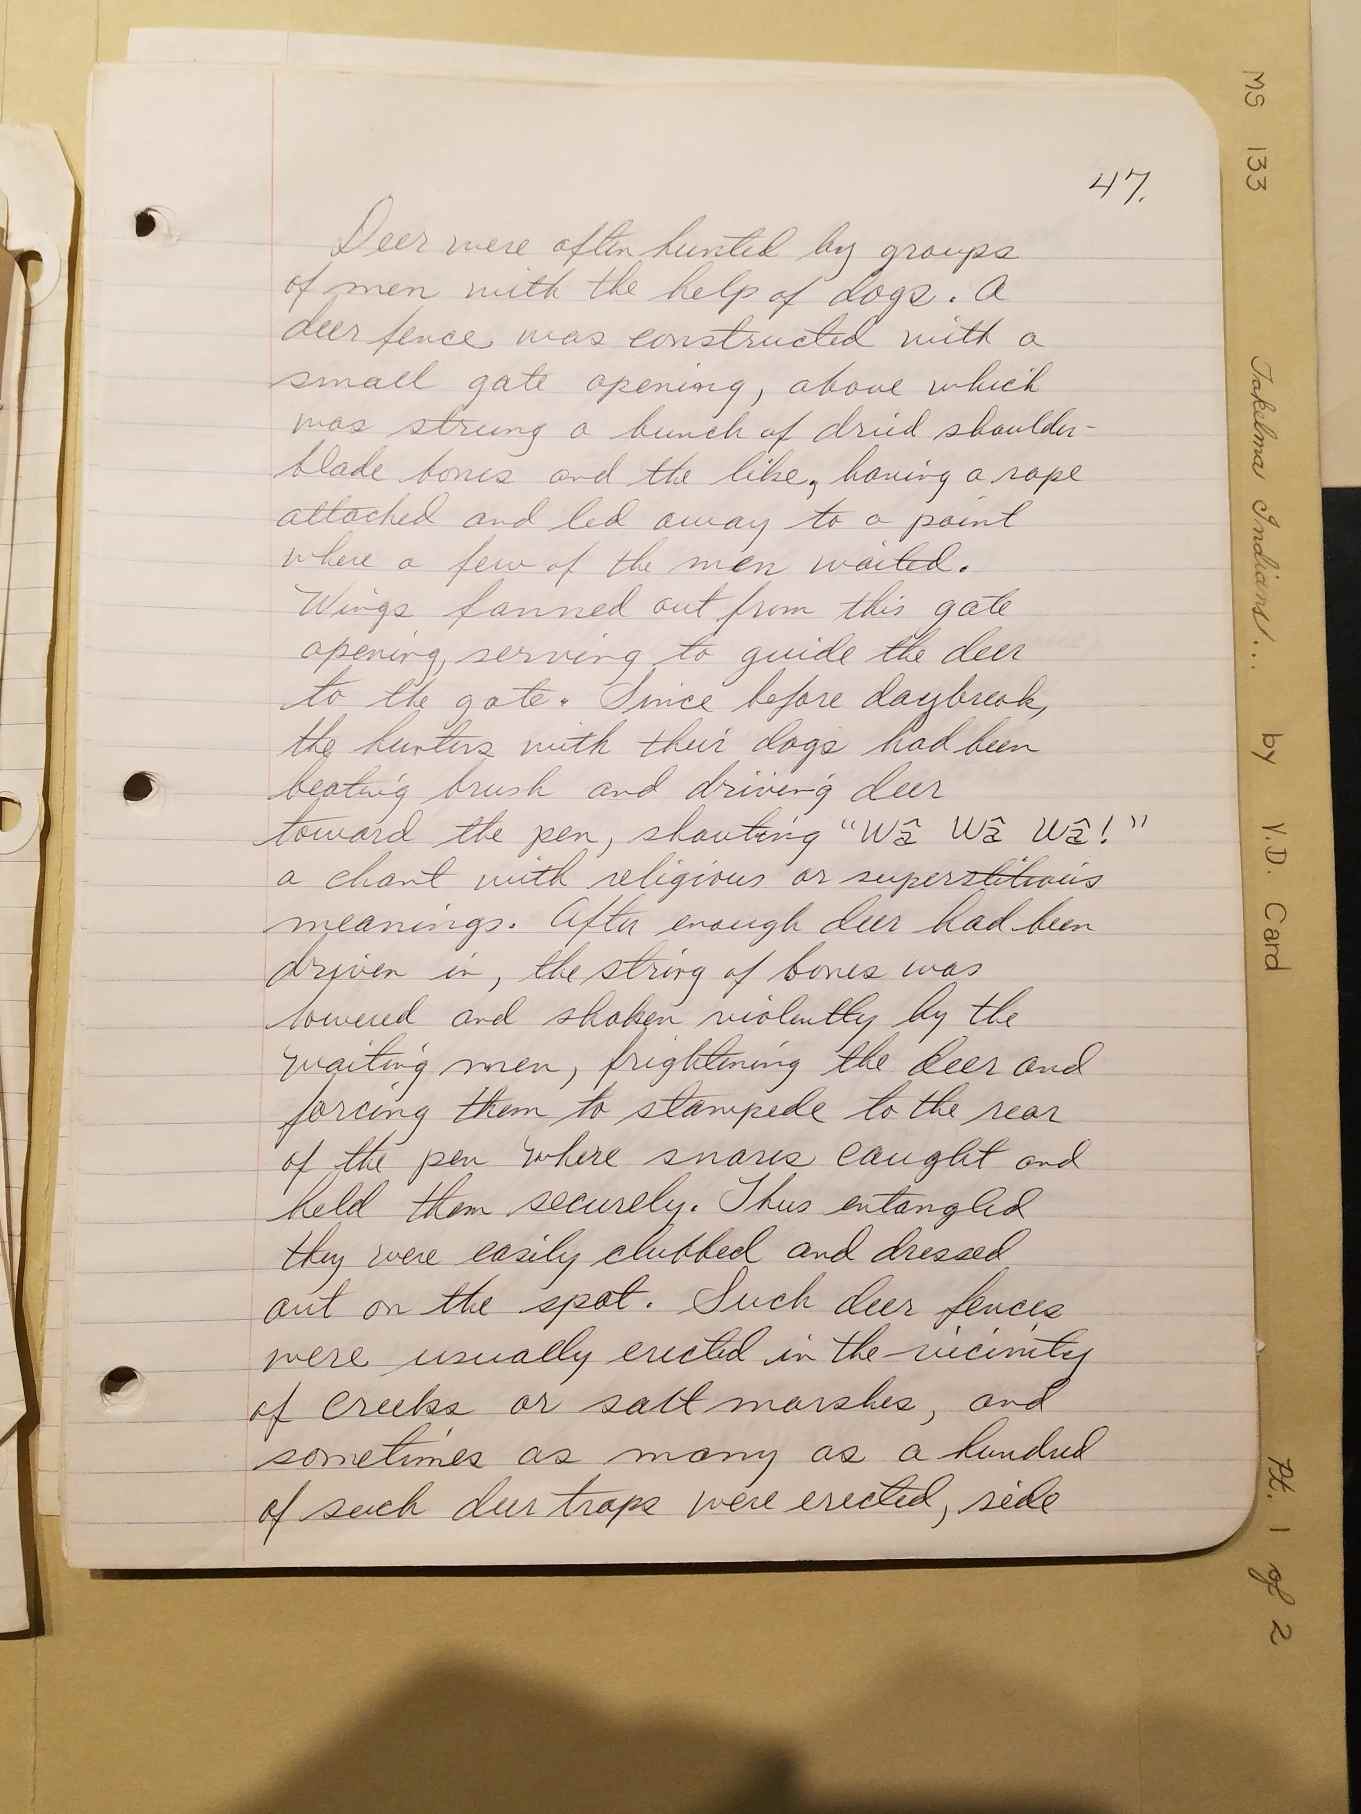 47.
Deer were often hunted by groups
of men with the help of dogs. A
deer fence was constructed with a
small gate opening, above which
was strung a bunch of dried shoulder-
blade bones and the like, having a rope
attached and led away to a point
where a few of the men waited.
Wings fanned out from this gate
opening, serving to guide the deer
to the gate. Since before daybreak,
the hunters with their dogs had been
beating brush and driving deer
toward the pen, shouting "Wâ Wâ Wâ!"
a chant with religious or superstitious
meanings. After enough deer had been
driven in, the string of bones was
lowered and shaken violently by the
waiting men, frightening the deer and
forcing them to stampede to the rear
of the pen where snares caught and
held them securely. Thus entangled
they were easily clubbed and dressed
out on the spot. Such deer fences
were usually erected in the vicinity
of creeks or salt marshes, and
sometimes as many as a hundred
of such deer traps were erected, side
MS 133 Takelma Indians... by V.D. Card Pt. 1 of 2